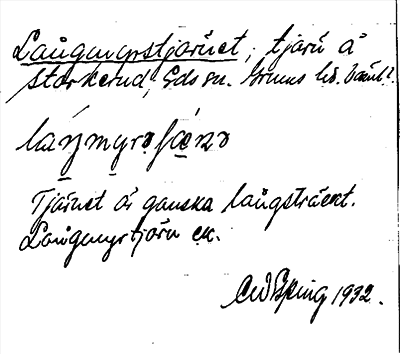 Långmyrstjärnet, tjärn å
Storkerud, Eds sn. Grums hd. Värml.
láŋmyrəʃæ̀nə
Tjärnet är ganska långsträckt.
Långmyrtjärn ek.
1932.